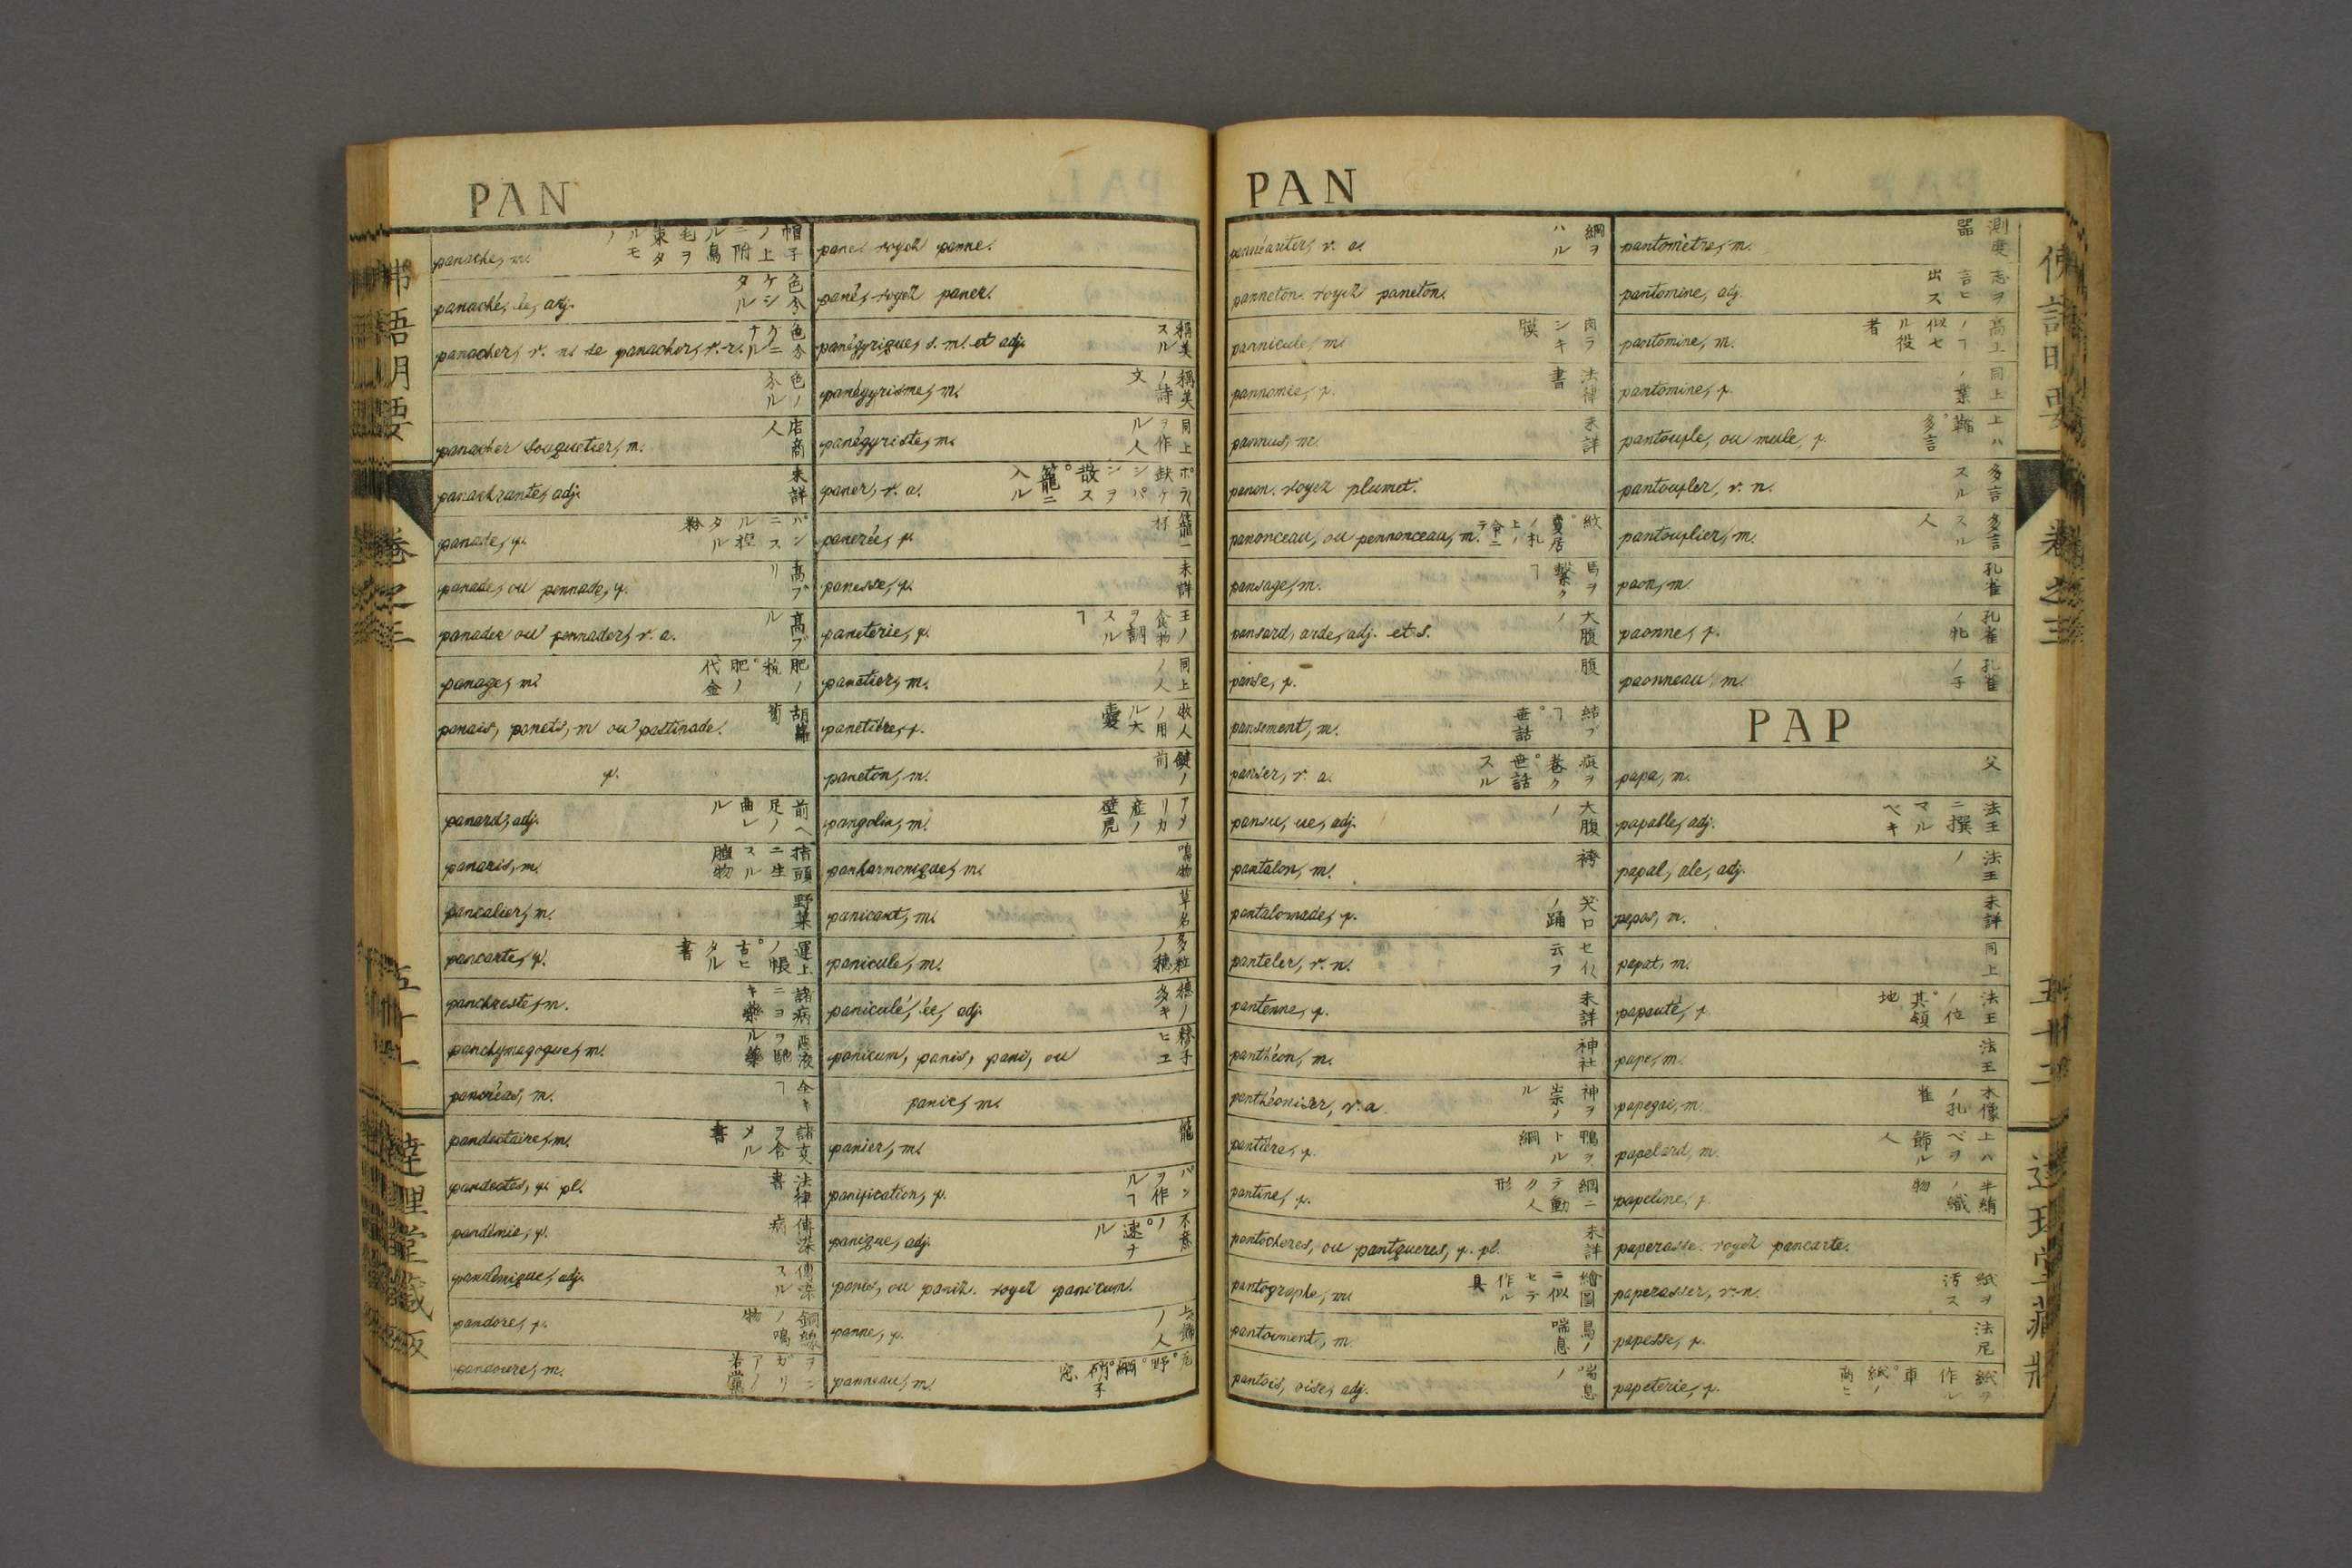 PAN
panache, m. 帽子ノ上ニ附ル鳥毛ヲ束タルモノ
panaché, ée, adj. 色分ケシタル
panacher, v. n. se panacher, v. r. 色分ケニナル
色ノ分ル
panacher bouquetier, m. 店商人
panachrante, adj. 未詳
panade, f.
panade, ou pennade, f. 高ブリ
panader ou pennader, v. a. 高ブル
panage, m. 肥ノ税°肥ノ代金
panais, panets, m ou pastinade. 胡蘿蔔
f.
panard, adj. 前ヘ足ノ曲レル
panaris, m. 指頭ニ生スル腫物
pancalier, m. 野菜
pancarte, f. 運上ノ帳°古ヒタル書
panchreste, m. 諸病ニヨキ薬
panchymagogue, m. 悪液ヲ馳ル薬
pancréas, m.
pandectaire, m.
pandectes, f. pl. 法律書
pandémie, f. 傳染病
pandémique, adj. 傳染スル
pandore, f. 銅線ノ鳴物
pandoure, m.
pane. voyez panne.
pané, voyez paner.
panégyrique, s. m. et adj. 稱美スル
panégyrisme, m. 稱美ノ詩文
panégyriste, m. 同上ヲ作ル人
paner, v. a.
panerée, f. 籠一杯
panesse, f. 未詳
paneterie, f. 王ノ食物ヲ調スルヿ
panetier, m. 同上ノ人
panetière, f. 牧人ノ用ル大嚢
paneton, m. 鍵ノ前
pangolin, m. アメリカ産ノ壁虎
panharmonique, m. 鳴物
panicaut, m. 草名
panicule, m. 多粒ノ穂
paniculé, ée, adj. 穂ノ多キ
panicum, panis, pani, ou 稗子ヒエ
panic, m.
panier, m. 籠
panification, f. パンヲ作ルヿ
panique, adj. 不意ノ°速ナル
panis, ou paniz. voyez panicum.
panne, f.
panneau, m.
PAN
pannéauter, v. a. 網ヲハル
panneton. voyez paneton.
pannicule, m. 肉ラシキ膜
pannomie, f. 法律書
pannus, m. 未詳
panon. voyez plumet.
panonceau, ou pennonceau, m.
pansage, m. 馬ヲ繋クヿ
pansard, arde, adj. et s. 大腹ノ
panse, f. 腹
pansement, m. 結ブヿ°世話
panser, v. a. 疵ヲ巻ク°世話スル
pansu, ue, adj. 大腹ノ
pantalon, m. 袴
pantalonnade, f. 笑口ノ踊
panteler, v. n.
pantenne, f. 未詳
panthéon, m. 神社
panthéoniser, v. a. 神ヲ崇ル
pantière, f. 鴨ヲトル網
pantine, f. 網ニテ動ク人形
pantocheres, ou pantqueres, f. pl. 未詳
pantographe, m. 繪圖ニ似セテ作ル具
pantoiment, m. 鳥ノ喘息
pantois, oise, adj. 喘息ノ
pantomètre, m. 測度器
pantomine, adj. 志ヲ言ヒ出ス
pantomine, m.
pantomine, f. 同上ノ業
pantoufle, ou mule, f. 上ハ鞜°多言
pantoufler, v. n. 多言スル
pantouflier, m. 多言スル人
paon, m. 孔雀
paonne, f. 孔雀ノ牝
paonneau, m. 孔雀ノ子
PAP
papa, m. 父
papable, adj. 法王ニ撰マルベキ
papal, ale, adj. 法王ノ
papas, m. 未詳
papat, m. 同上
papauté, f. 法王ノ位°其領地
pape, m. 法王
papegai, m. 木像ノ孔雀
papelard, m. 上ハベヲ飾ル人
papeline, f. 半絹ノ織物
paperasse. voyez pancarte.
paperasser, v. n. 紙ヲ汚ス
papesse, f. 法尼
papeterie, f.
佛語明要 卷之三 五十二 達理堂藏版